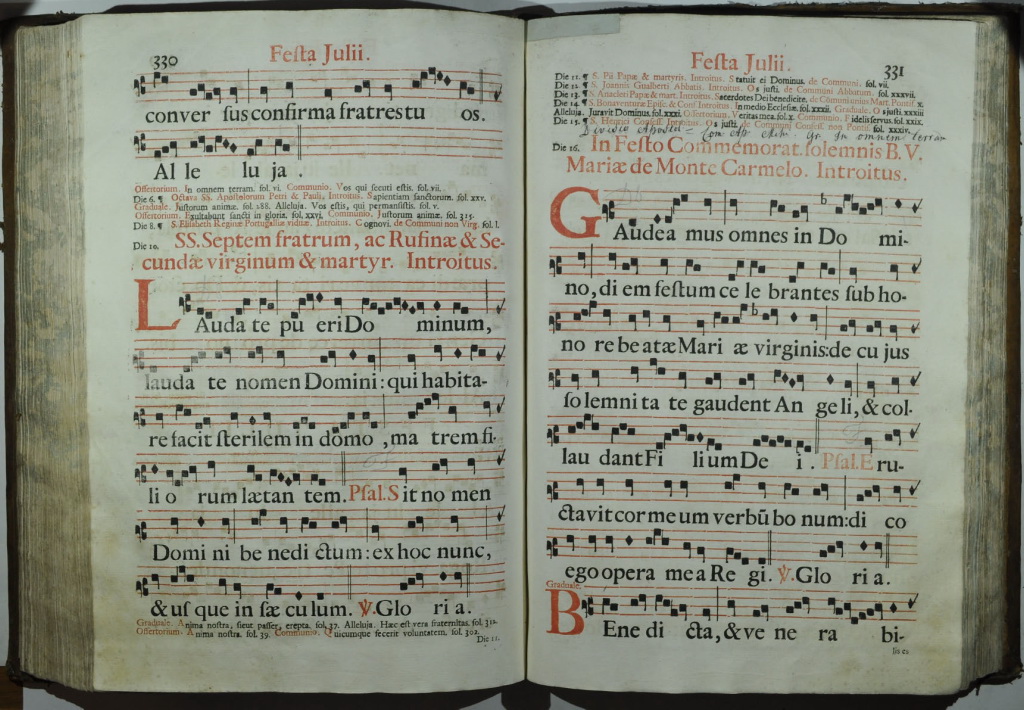 330
Festa Julii.
conver sus confirma fratres tu os.
Al le lu ja.
Offertorium. In omnem terram. fol. vi. Communio. Vos qui secuti estis. fol. vii.
Die 6. ¶ Octava SS. Apostolorum Petri & Pauli, Introitus. Sapientiam sanctorum. fol. xxv.
Graduale. Justorum animæ. fol. 288. Alleluja. Vos estis, qui permansistis. fol. v.
Offertorium. Exultabunt sancti in gloria. fol. xxvi. Communio. Justorum animæ. fol. 315.
Die 8. ¶ S. Elisabeth Reginæ Portugalliæ viduæ. Introitus. Cognovi. de Communi non Virg. fol. l.
Die 10. SS. Septem fratrum, ac Rufinæ & Se-
cundæ virginum & martyr. Introitus.
LAuda te pu eri Do minum,
lauda te nomen Domini: qui habita-
re facit sterilem in domo, ma trem fi-
li o rum lætan tem. Psal. Sit no men
Domi ni be nedi ctum: ex hoc nunc,
& us que in sæ culum. ℣. Glo ri a.
Graduale. Anima nostra, sicut passer, erepta. fol. 37. Alleluja. Hæc est vera fraternitas. fol. 312.
Offertorium. Anima nostra. fol. 39. Communio. Quicumque fecerit voluntatem. fol. 302.
Die 11.
Festa Julii.
331
Die 11. ¶ S. Pii Papæ & martyris. Introitus. Statuit ei Dominus. de Communi. fol. vii.
Die 12. ¶ S. Joannis Gualberti Abbatis. Introitus. Os justi. de Communi Abbatum. fol. xxxvii.
Die 13. ¶ S. Anacleti Papæ & mart. Introitus. Sacerdotes Dei benedicite. de Communi un. Mart. Pontif. x.
Die 14. ¶ S. Bonaventuræ Episc. & Conf. Introitus. In medio Ecclesiæ. fol. xxxii. Graduale. Os justi. xxxiii
Alleluja. Juravit Dominus. fol. xxxi. Offertorium. Veritas mea. fol. x. Communio. Fidelis servus. fol. xxix.
Die 15. ¶ S. Henrici Confess. Introitus. Os justi. de Communi Confess. non Pontif. fol. xxxiv.
in omnem terram
Die 16. In Festo Commemorat. solemnis B. V.
Mariæ de Monte Carmelo. Introitus.
GAudea mus omnes in Do mi-
no, di em festum ce le brantes sub ho-
no re beatæ Mari æ virginis: de cu jus
so lemni ta te gaudent An ge li, & col-
lau dant Fi li um De i. Psal. E ru-
ctavit cor me um verbū bo num: di co
ego opera me a Re gi. ℣. Glo ri a.
Graduale.
BEne di cta, & ve ne ra bi-
lis es